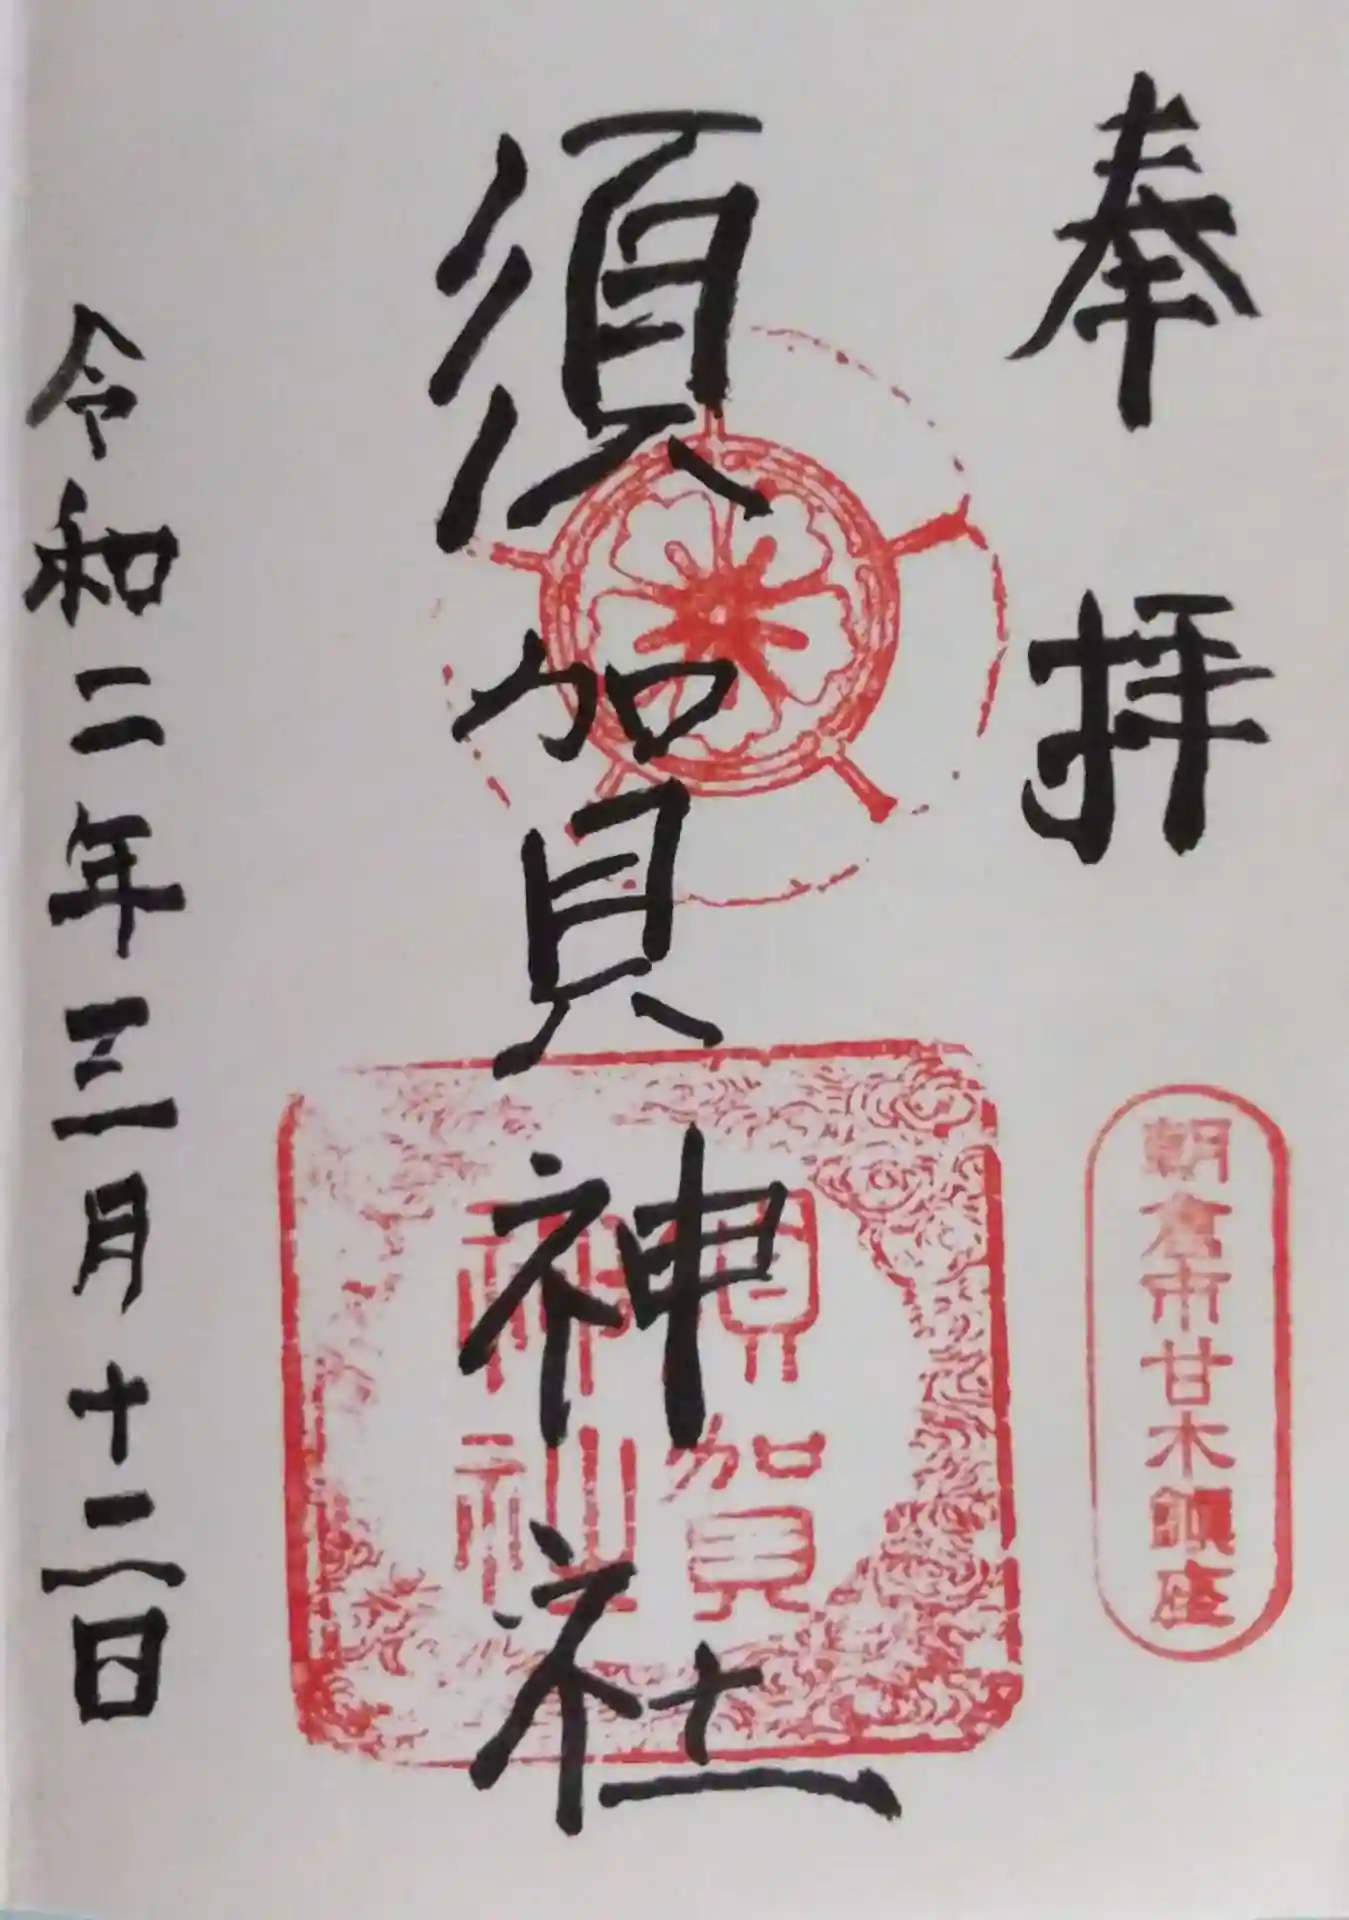 奉拝
朝倉市甘木鎮座
須賀神社
須賀
神社
令和二年三月十二日